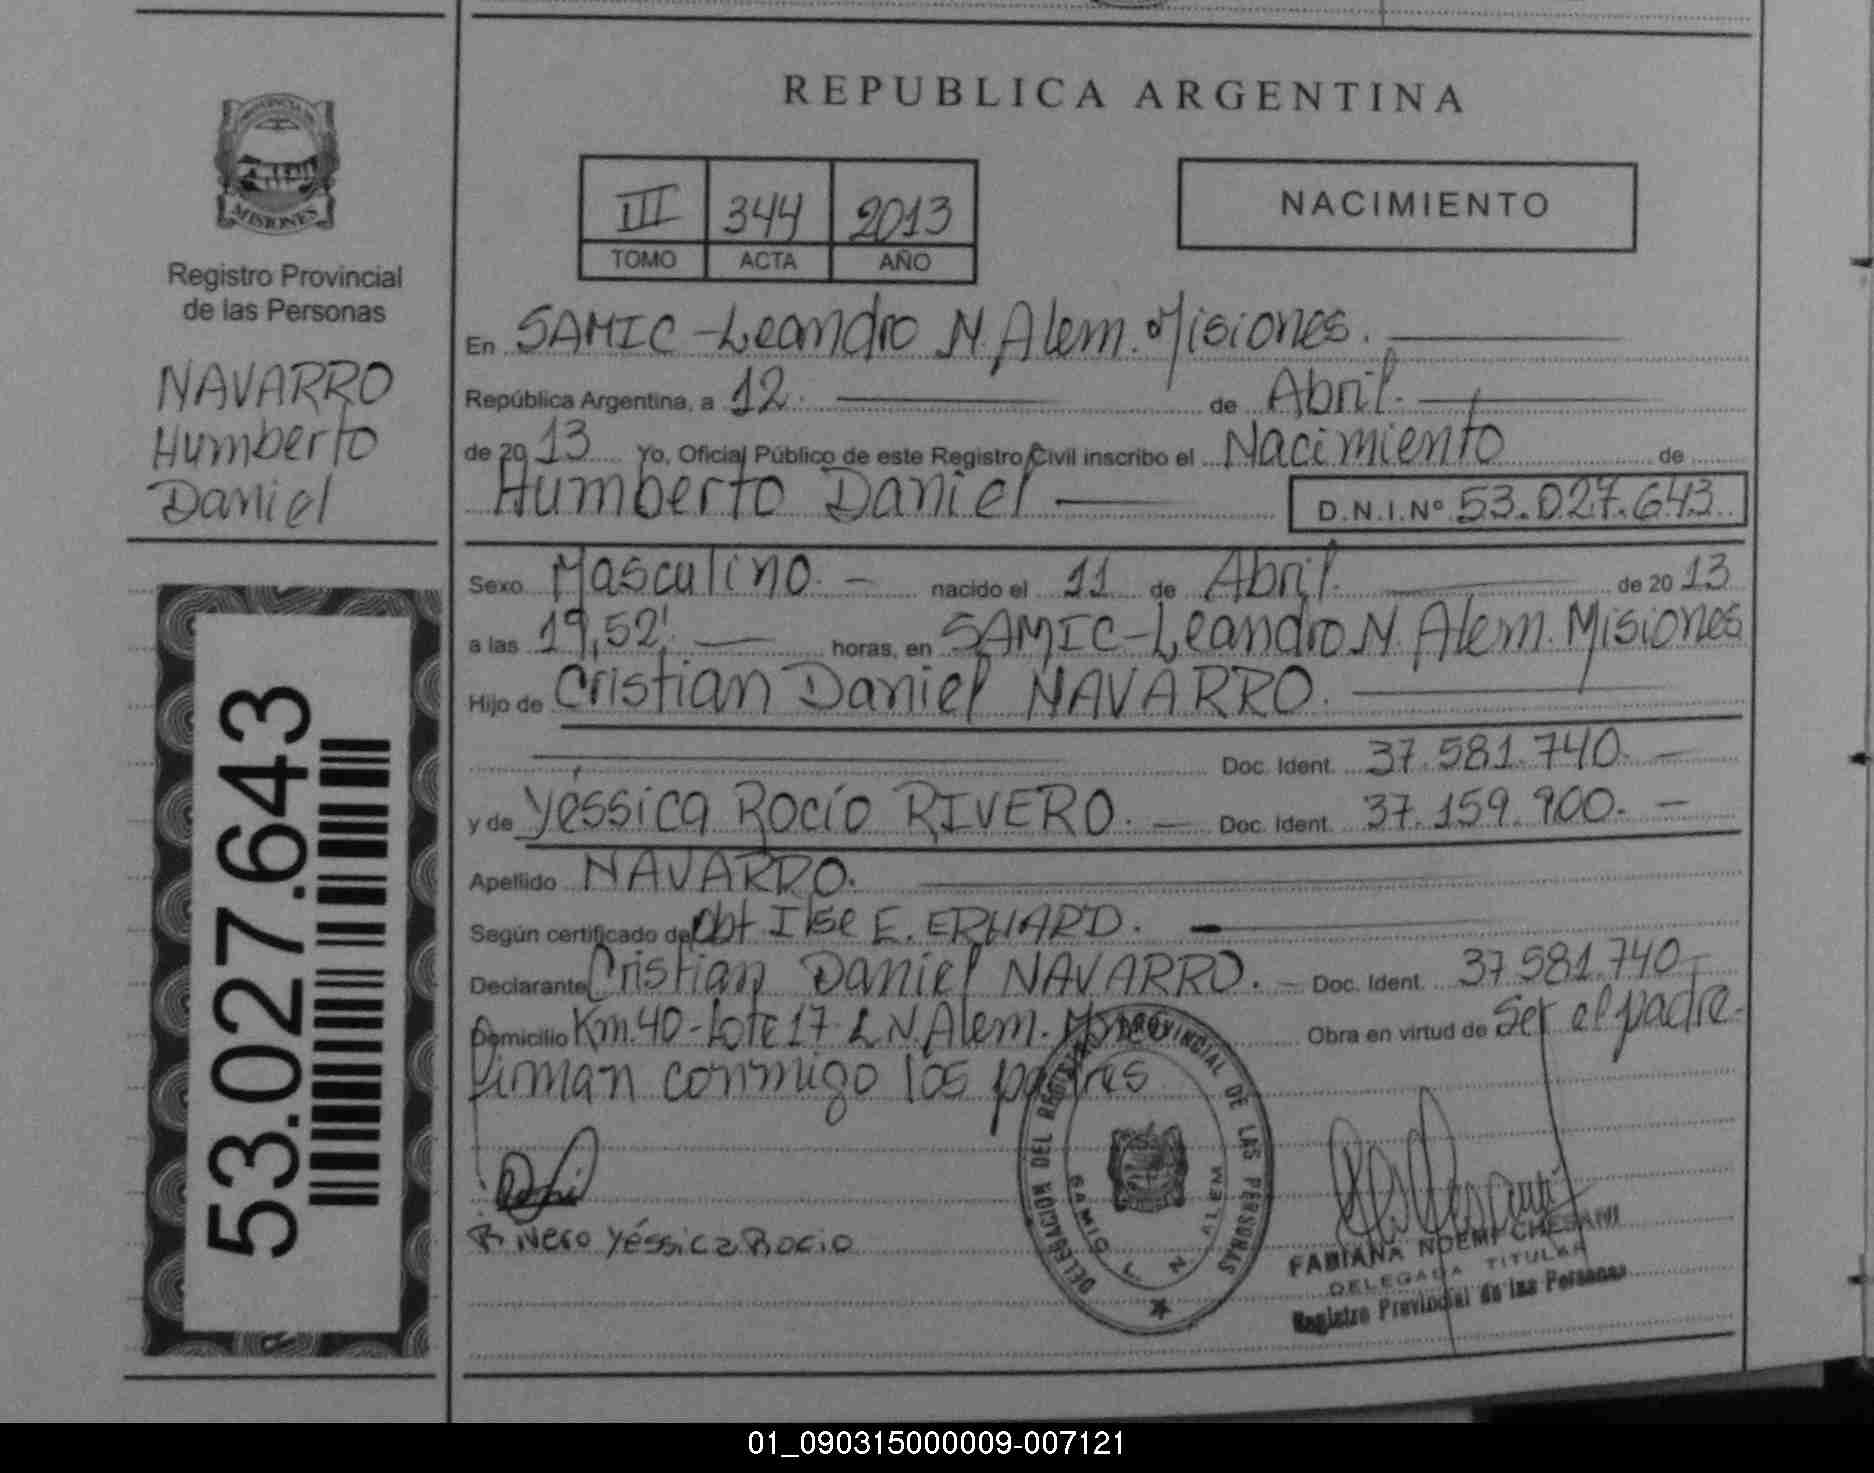 REPUBLICA ARGENTINA
PROVINCIA DE
MISIONES
Registro Provincial
de las Personas
NAVARRO
Humberto
Daniel
53.027.643
III 344 2013
TOMO ACTA AÑO
NACIMIENTO
En SAMIC - Leandro N. Alem. Misiones.
República Argentina, a 12. de Abril.
de 2013 Yo, Oficial Público de este Registro Civil inscribo el Nacimiento de
Humberto Daniel D.N.I.Nº 53.027.643.
Sexo Masculino. - nacido el 11 de Abril. de 2013
a las 19,52' horas, en SAMIC - Leandro N. Alem. Misiones
Hijo de Cristian Daniel NAVARRO.
Doc. Ident. 37.581.740. -
y de Yéssica Rocío RIVERO. - Doc. Ident. 37.159.900. -
Apellido NAVARRO.
Según certificado de Obt Ilse E. ERHARD.
Declarante Cristian Daniel NAVARRO. - Doc. Ident. 37.581.740 -
Domicilio Km. 40 - Lote 17 - L.N. Alem. Obra en virtud de Ser el padre.
Firman conmigo los padres
Rivero Yéssica Rocio
DELEGACION DEL REGISTRO PROVINCIAL DE LAS PERSONAS
SAMIC L. N. ALEM
FABIANA NOEMI CHESANI
DELEGADA TITULAR
Registro Provincial de las Personas
01_090315000009-007121